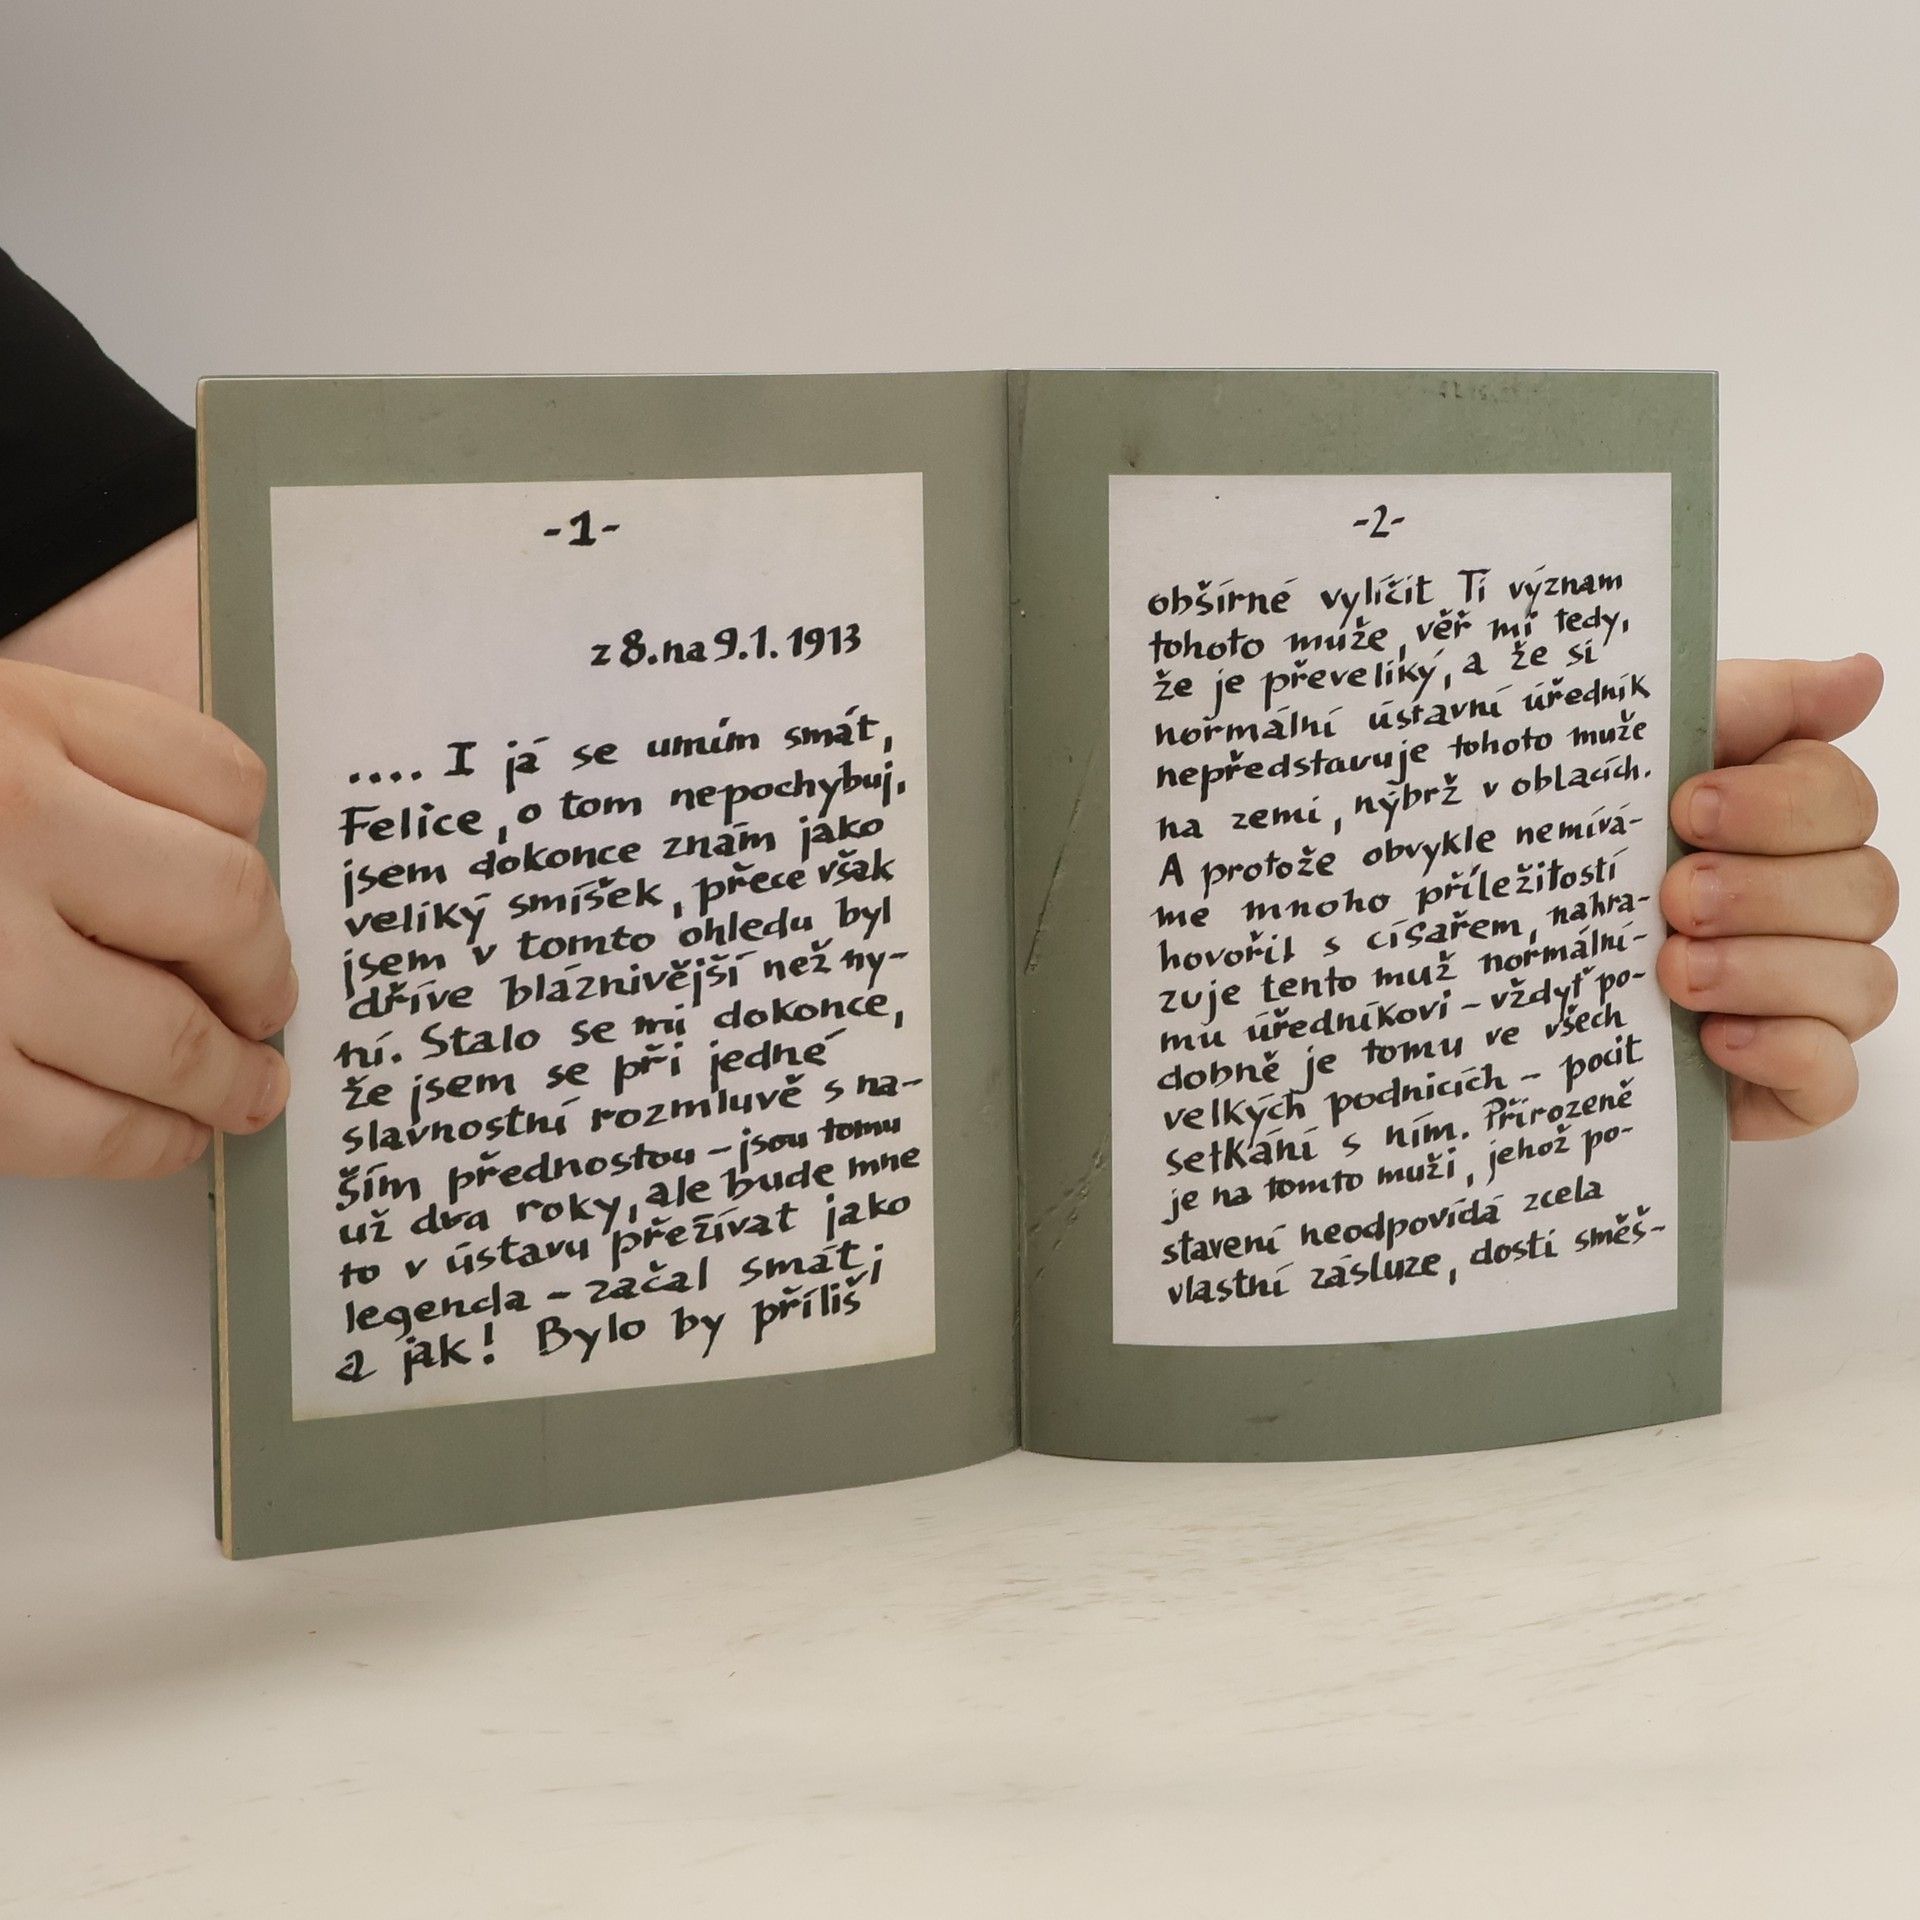 -1-
z 8. na 9.1. 1913
.... I já se umím smát,
Felice, o tom nepochybuj,
jsem dokonce znám jako
veliký smíšek, přece však
jsem v tomto ohledu byl
dříve bláznivější než ny-
ní. Stalo se mi dokonce,
že jsem se při jedné
slavnostní rozmluvě s na-
ším přednostou – jsou tomu
už dva roky, ale bude mne
to v ústavu přežívat jako
legenda – začal smát;
a jak! Bylo by příliš
-2-
obšírné vylíčit Ti význam
tohoto muže, věř mi tedy,
že je převeliký, a že si
normální ústavní úředník
nepředstavuje tohoto muže
na zemi, nýbrž v oblacích.
A protože obvykle nemívá-
me mnoho příležitostí
hovořit s císařem, nahra-
zuje tento muž normální-
mu úředníkovi – vždyť po-
dobně je tomu ve všech
velkých podnicích – pocit
setkání s ním. Přirozeně
je na tomto muži, jehož po-
stavení neodpovídá zcela
vlastní zásluze, dosti směš-